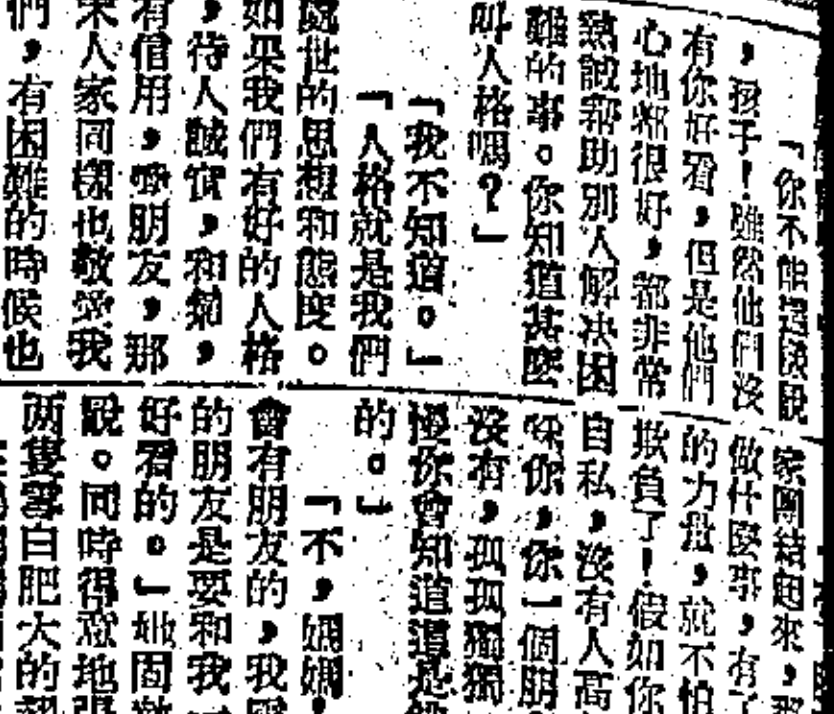 「你不能這樣說
，孩子！雖然他們沒
有你好看，但是他們
心地都很好，都非常
熱誠幫助別人解决困
難的事。你知道甚麼
叫人格嗎？」
「我不知道。」
「人格就是我們
處世的思想和態度。
如果我們有好的人格
，待人誠實，和藹，
有信用，愛朋友，那
人家同樣也敬愛我
們，有困難的時候也
家團結起來，那
做什麼事，有了
的力量，就不怕
欺負了！假如你
自私，沒有人高
睬你，你一個朋
沒有，孤孤獨獨
你會知道這是
的。」
「不，媽媽，
會有朋友的，我
的朋友是要和我
好看的。」她固
說。同時得意地
两隻雪白肥大的